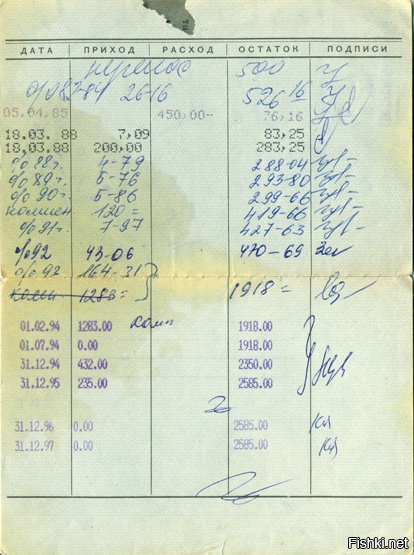 ДАТА ПРИХОД РАСХОД ОСТАТОК ПОДПИСИ
перенос 500
%83-84 26-16 526 16
05.04.85 450,00- 76,16
18.03. 88 7,09 83,25
18.03.88 200,00 283,25
%88г. 4-79 288-04
%89г. 5-76 293-80
%90г. 5-86 299-66
компен 120= 419-66
%91г. 7-97 427-63
%92 43-06 470-69
%92 164-31
комп 1283= 1918=
01.02.94 1283.00 комп 1918.00
01.07.94 0.00 1918.00
31.12.94 432.00 2350.00
31.12.95 235.00 2585.00
31.12.96 0.00 2585.00
31.12.97 0.00 2585.00
Fishki.net